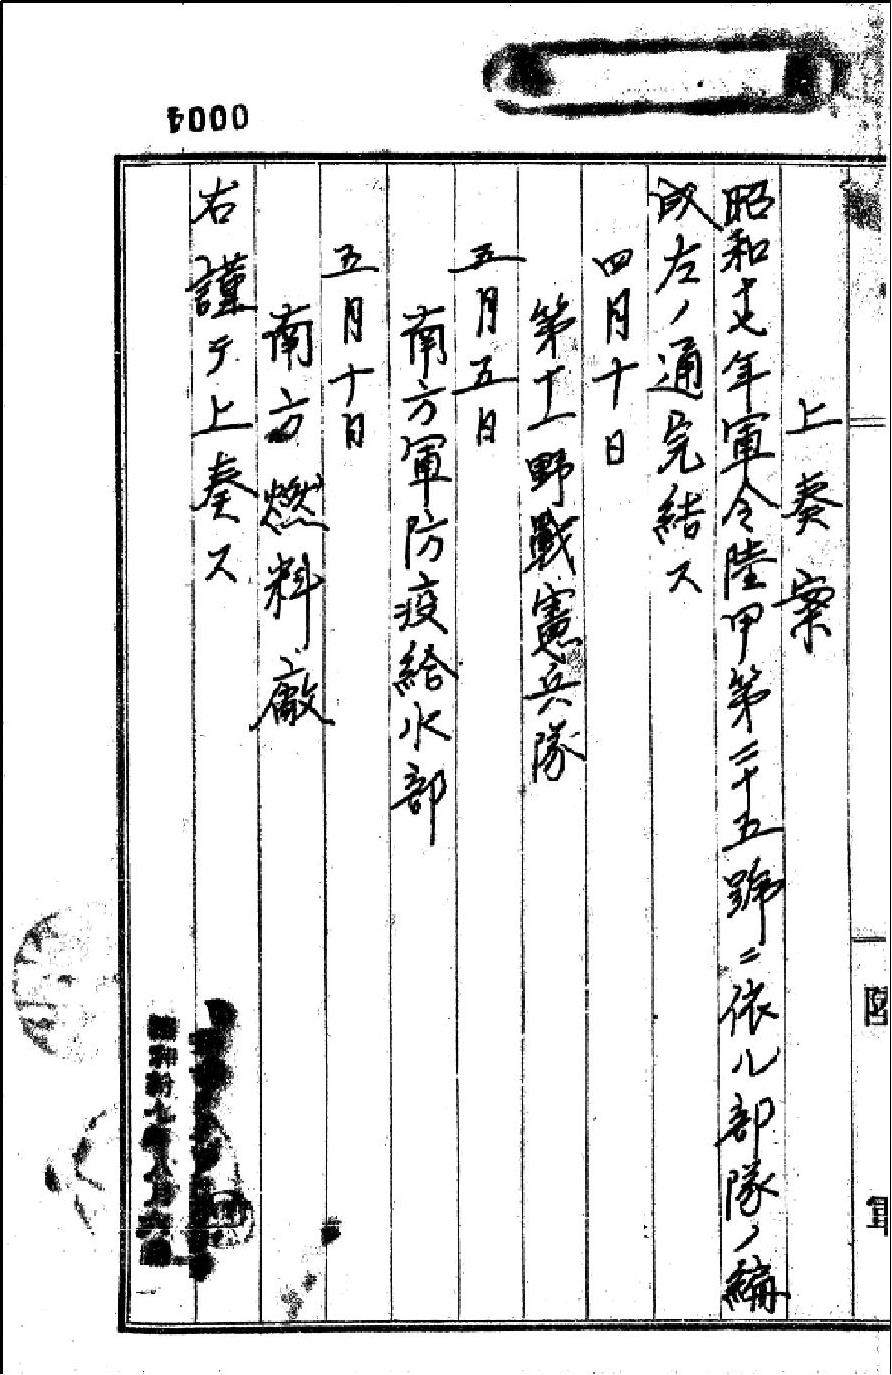 0004
陸軍
上奏案
昭和十七年軍令陸甲第二十五號ニ依ル部隊ノ編
成左ノ通完結ス
四月十日
第十一野戰憲兵隊
五月五日
南方軍防疫給水部
五月十日
南方燃料廠
右謹テ上奏ス